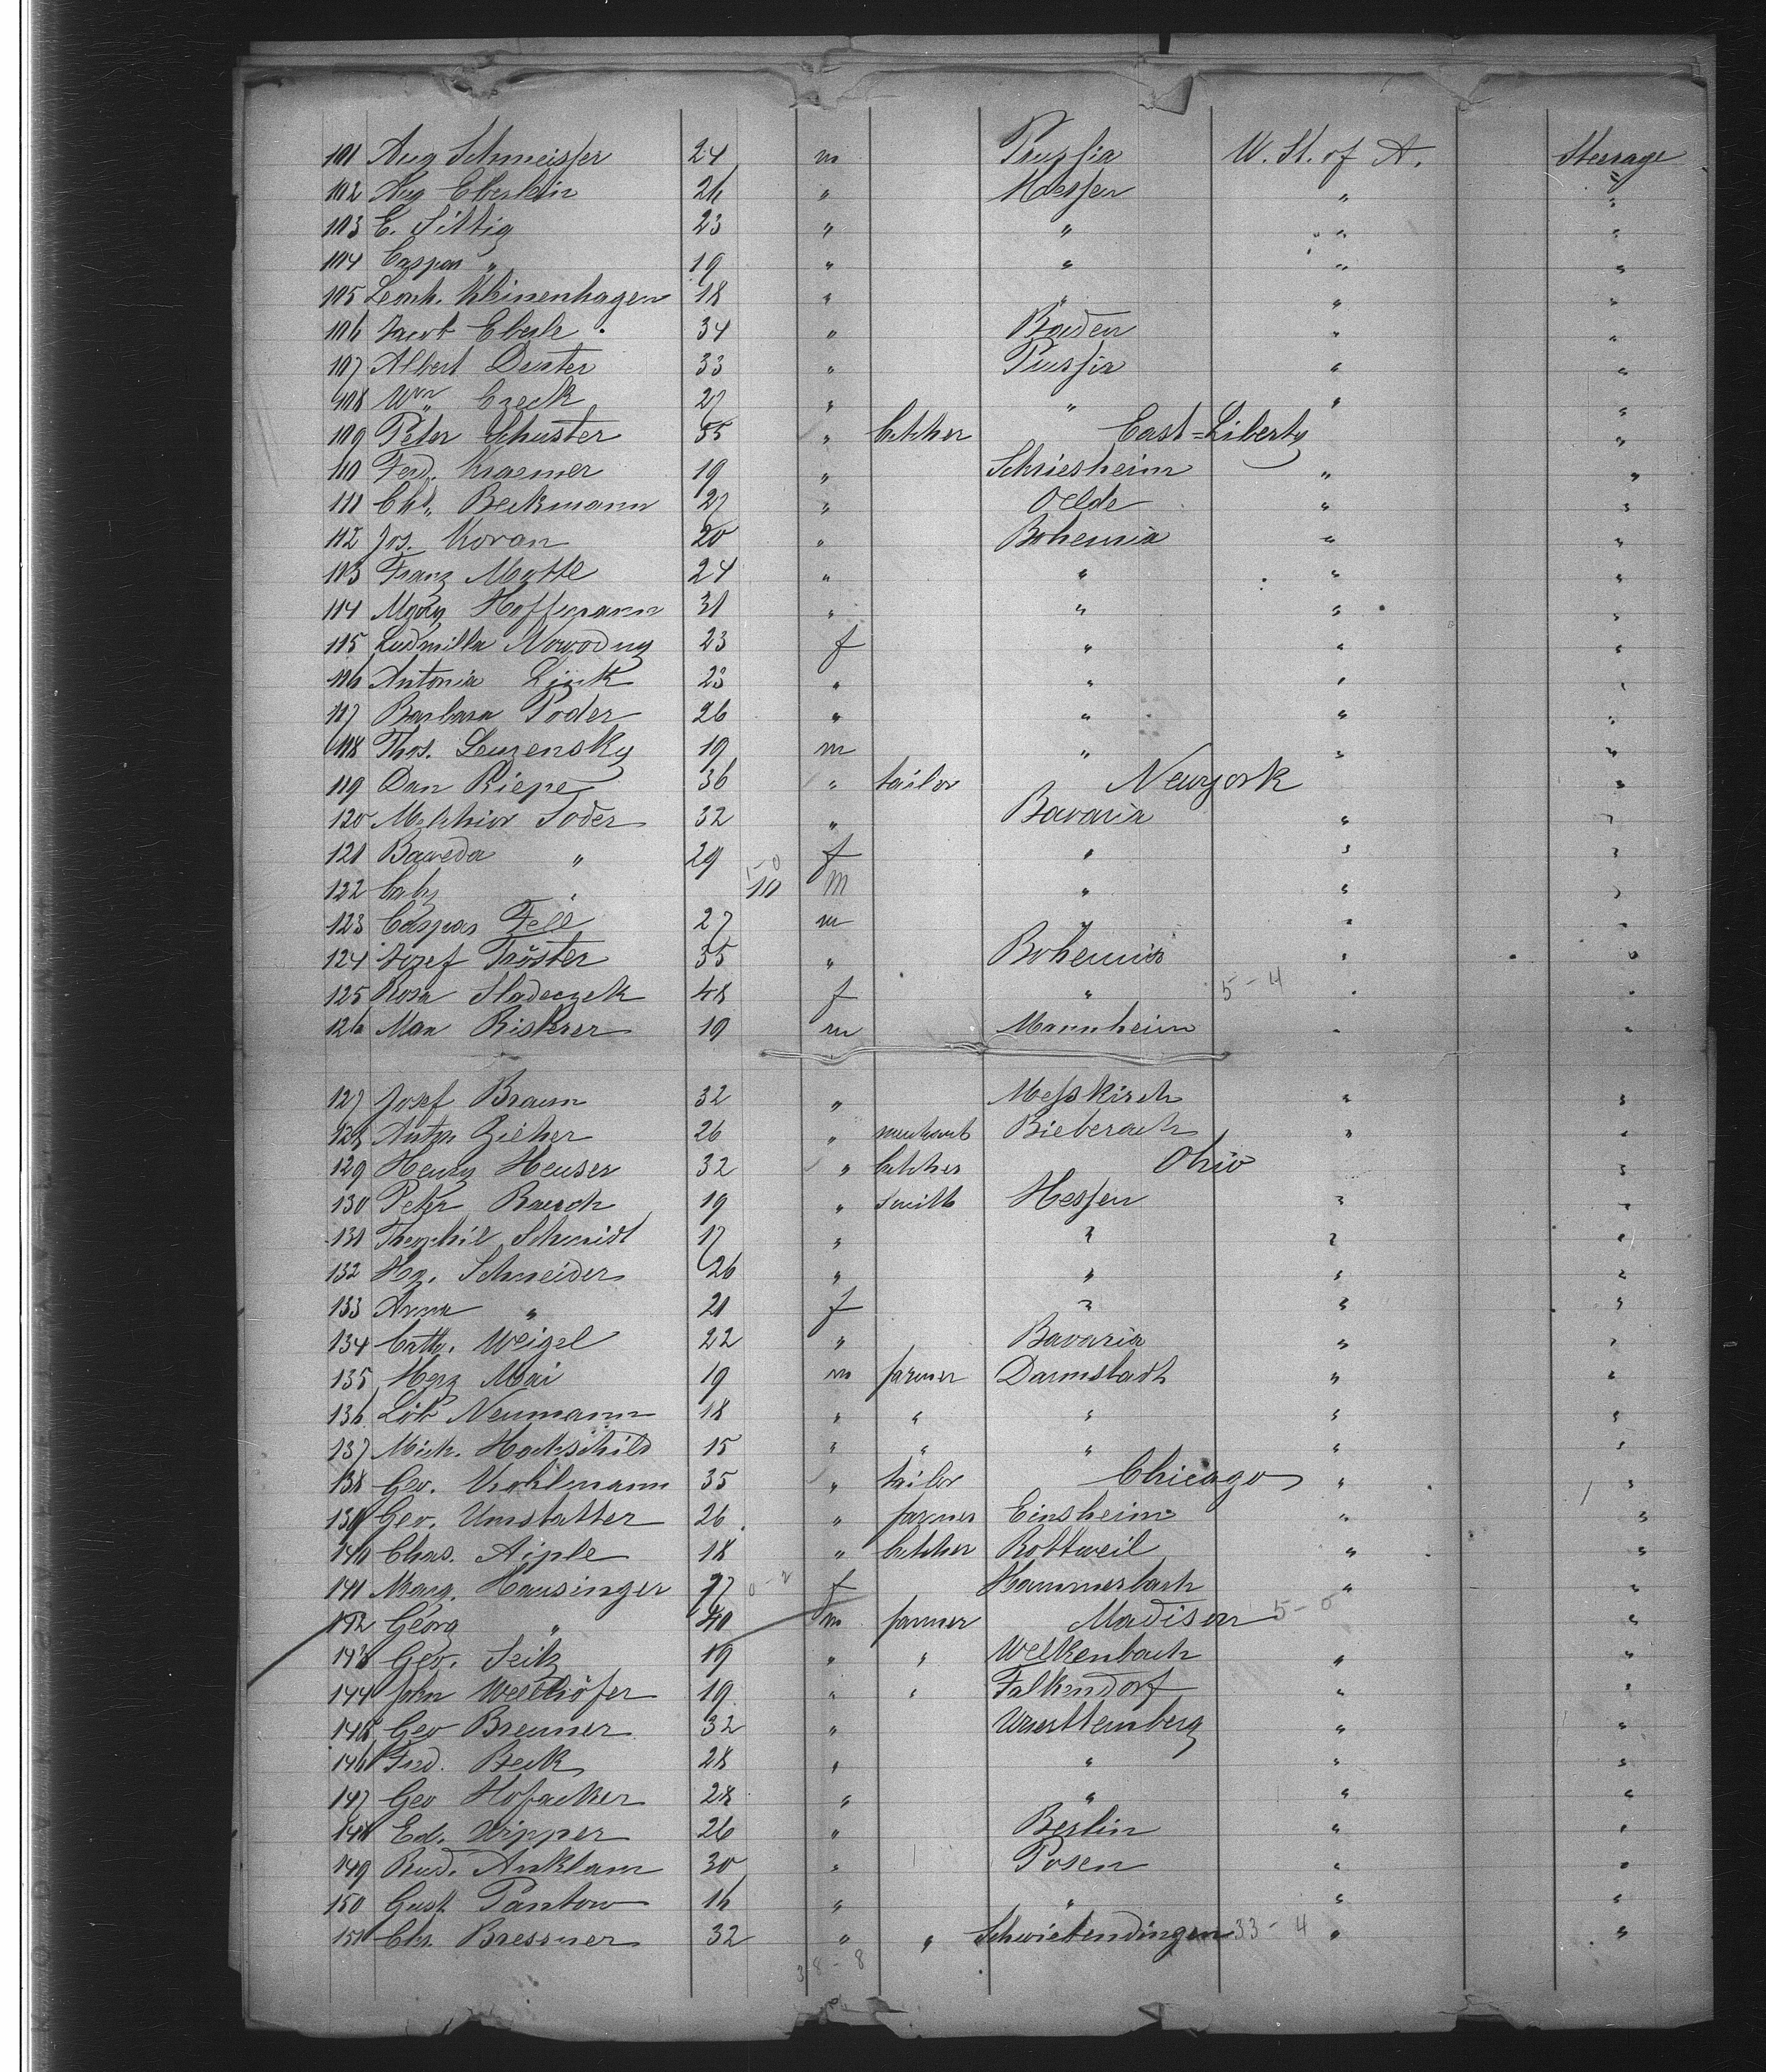 101 Aug Schmeisser 24 m Prussia U. St. of A. Steerage
102 Aug Eberlein 26 " Hessen " "
103 E. Sittig 23 " " " "
104 Caspar " 19 " " " "
105 Leonh. Kleinenhagen 18 " " " "
106 Jacob Eberle 34 " Baden " "
107 Albert Deuter 33 " Prussia " "
108 Wm Czeck 27 " " " "
109 Peter Schuster 55 " butcher East-Liberty "
110 Ferd. Kraemer 19 " Schriesheim " "
111 Chr. Beckmann 27 " Oelde " "
112 Jos. Koran 20 " Bohemia " "
113 Franz Mottl 24 " " " "
114 Hoffmann 31 " " " "
115 Ludmilla Nowodny 23 f " " "
116 Antonia Link 23 " " " "
117 Barbara Poder 26 " " " "
118 Thos. Leuzensky 19 m " " "
119 Dan Riepe 36 " tailor Newyork "
120 Melchior Soder 32 " Bavaria " "
121 " 29 f " " "
122 10 m " " "
123 Caspar Fell 27 m " " "
124 Josef Tröster 35 " Bohemia " "
125 Rosa Sladeczek 48 f " 5-4 " "
126 Max Riskerer 19 m Mannheim " "
127 Josef Braun 32 " Messkirch " "
128 Anton Zieher 26 " merchant Bieberach " "
129 Henry Heuser 32 " butcher Ohio "
130 Peter Rauch 19 " smith Hessen " "
131 Theophil Schmidt 17 " " " "
132 Hy. Schneider 26 " " " "
133 Anna " 21 f " " "
134 Cath. Weigel 22 " Bavaria " "
135 Herz Mai 19 m farmer Darmstadt " "
136 Löb Neumann 18 " " " " "
137 Mich. Hochschild 15 " " " " "
138 Geo. Kohlmann 35 " tailor Chicago " "
139 Geo. Umstatter 26 " farmer Einsheim " "
140 Chas. Aiple 18 " butcher Rottweil " "
141 Marg. Hausinger 77 0-2 f Hammerbach " "
142 Georg " 40 m farmer Madison 5-0 "
143 Geo. Seitz 19 " " Welkenbach " "
144 John Wellhöfer 19 " " Falkendorf " "
145 Geo Brenner 32 " Wuerttemberg " "
146 Fred. Beck 28 " " " "
147 Geo Hofacker 28 " " " "
148 Ed. Wipper 26 " Berlin " "
149 Rud. Anklam 30 " Posen " "
150 Gust. Pantow 16 " " " "
151 Chr. Bressmer 32 " " Schwietendingen 33-4 " "
38-8